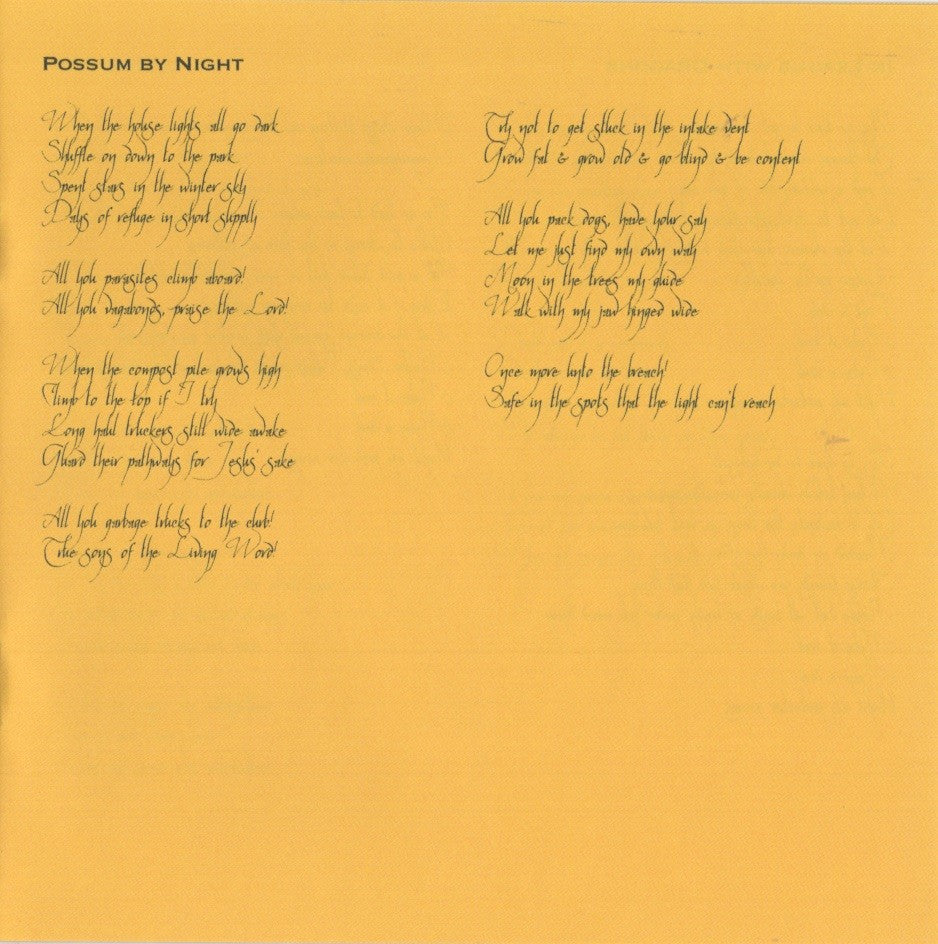 POSSUM BY NIGHT
When the house lights all go dark
Shuffle on down to the park
Spent stars in the winter sky
Days of refuge in short supply
All you parasites climb aboard!
All you vagabonds, praise the Lord!
When the compost pile grows high
Climb to the top if I try
Long haul truckers still wide awake
Guard their pathways for Jesus' sake
All you garbage trucks to the curb!
True sons of the Living Word!
Try not to get stuck in the intake vent
Grow fat & grow old & go blind & be content
All you pack dogs, have your say
Let me just find my own way
Moon in the trees my guide
Walk with my jaw hinged wide
Once more unto the breach!
Safe in the spots that the light can't reach